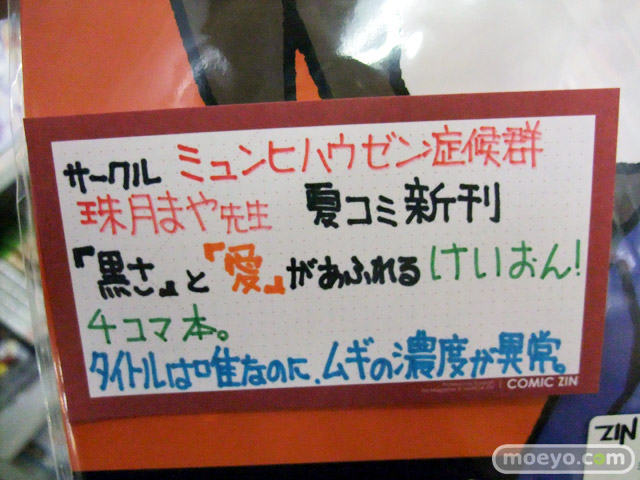 サークル ミュンヒハウゼン症候群
珠月まや先生 夏コミ新刊
『黒さ』と『愛』があふれるけいおん!
4コマ本。
タイトルは唯なのに、ムギの濃度が異常。
COMIC ZIN
ZIN
moeyo.com